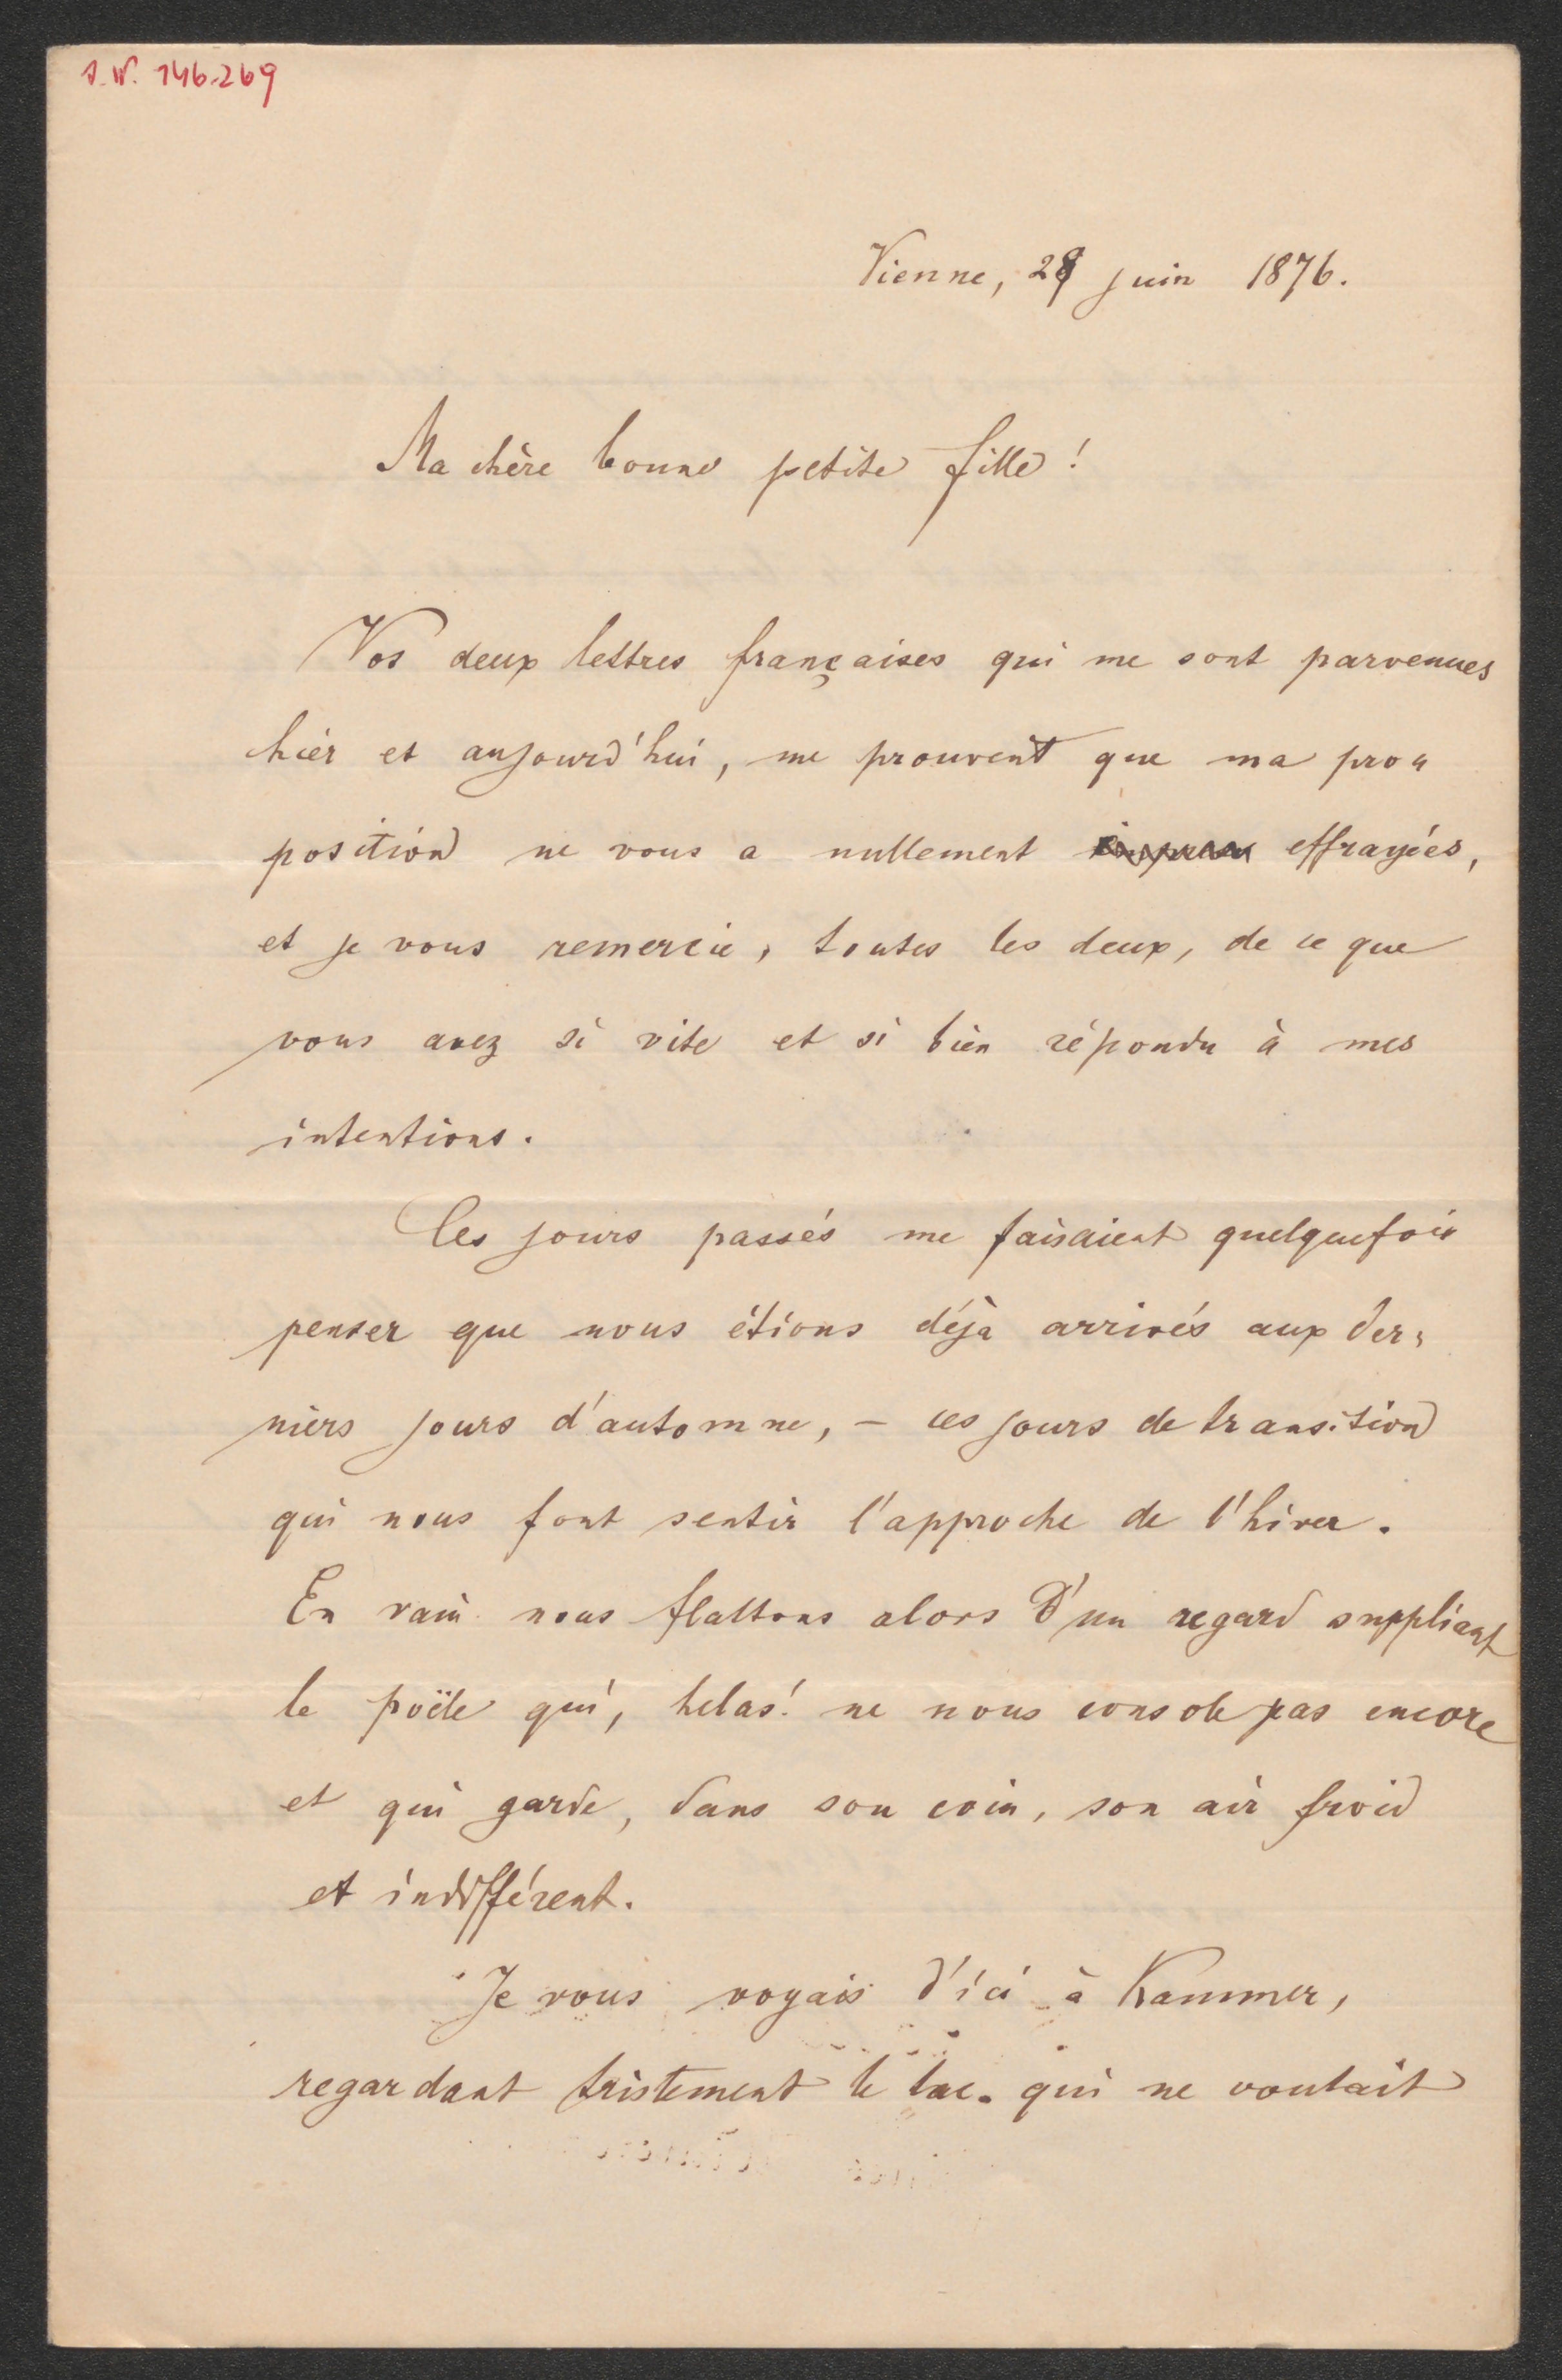 J.N. 146.269
Vienne, 29 juin 1876.
Ma chère bonne petite fille!
Vos deux lettres françaises qui me sont parvenues
hier et aujourd'hui, me prouvent que ma pro=
position ne vous a nullement effrayées,
et je vous remercie, toutes les deux, de ce que
vous avez si vite et si bien répondu à mes
intentions.
Ces jours passés me faisaient quelquefois
penser que nous étions déjà arrivés aux der=
niers jours d'automne, – ces jours de transition
qui nous font sentir l'approche de l'hiver.
En vain nous flattons alors d'un regard suppliant
le poële qui, helas! ne nous console pas encore
et qui garde, dans son coin, son air froid
et indifférent.
Je vous voyais d'ici à Kammer,
regardant tristement le lac. qui ne voulait